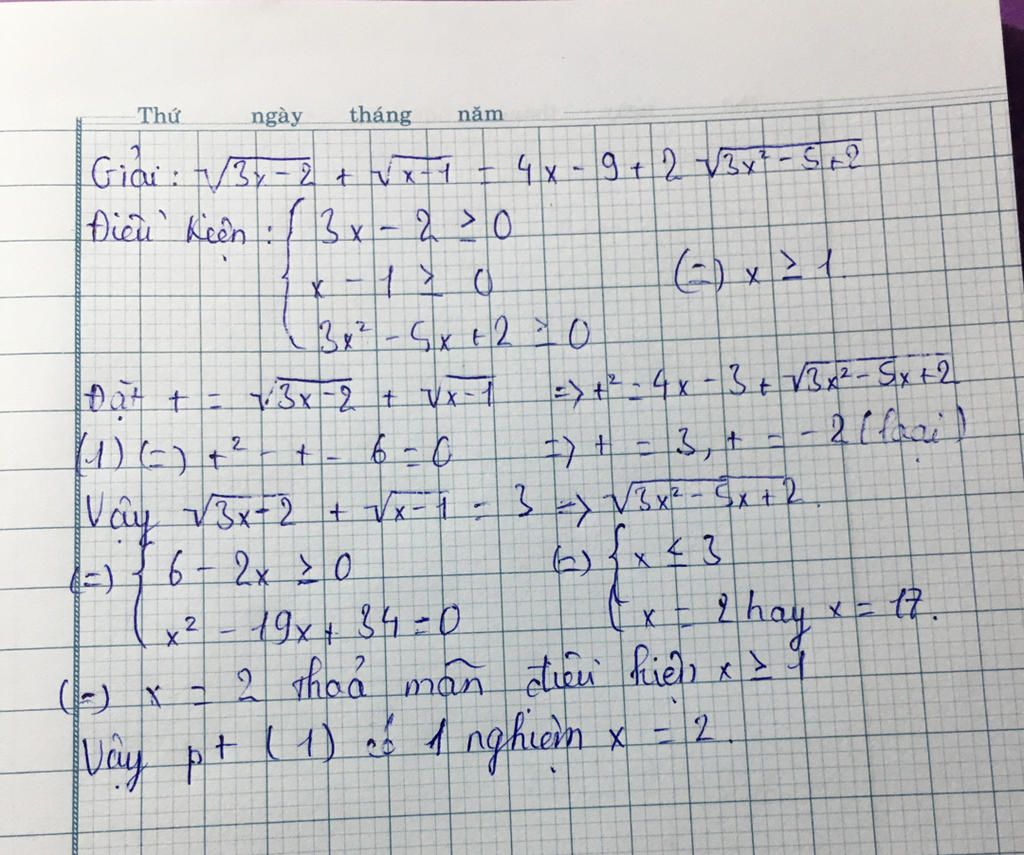 Thứ ngày tháng năm
Giải: √(3x-2) + √(x-1) = 4x - 9 + 2 √(3x² - 5+2)
Điều kiện: { 3x - 2 ≥ 0
x - 1 ≥ 0 (=) x ≥ 1.
3x² - 5x + 2 ≥ 0
Đặt t = √(3x-2) + √(x-1) => t² = 4x - 3 + √(3x² - 5x+2)
(1) (=) t² - t - 6 = 0 => t = 3, t = -2 (loại)
Vậy √(3x-2) + √(x-1) = 3 => √(3x² - 5x+2).
(=) { 6 - 2x ≥ 0 (=) { x ≤ 3
x² - 19x + 34 = 0 x = 2 hay x = 17.
(=) x = 2 thoả mãn điều kiện x ≥ 1
Vậy pt (1) có 1 nghiệm x = 2.